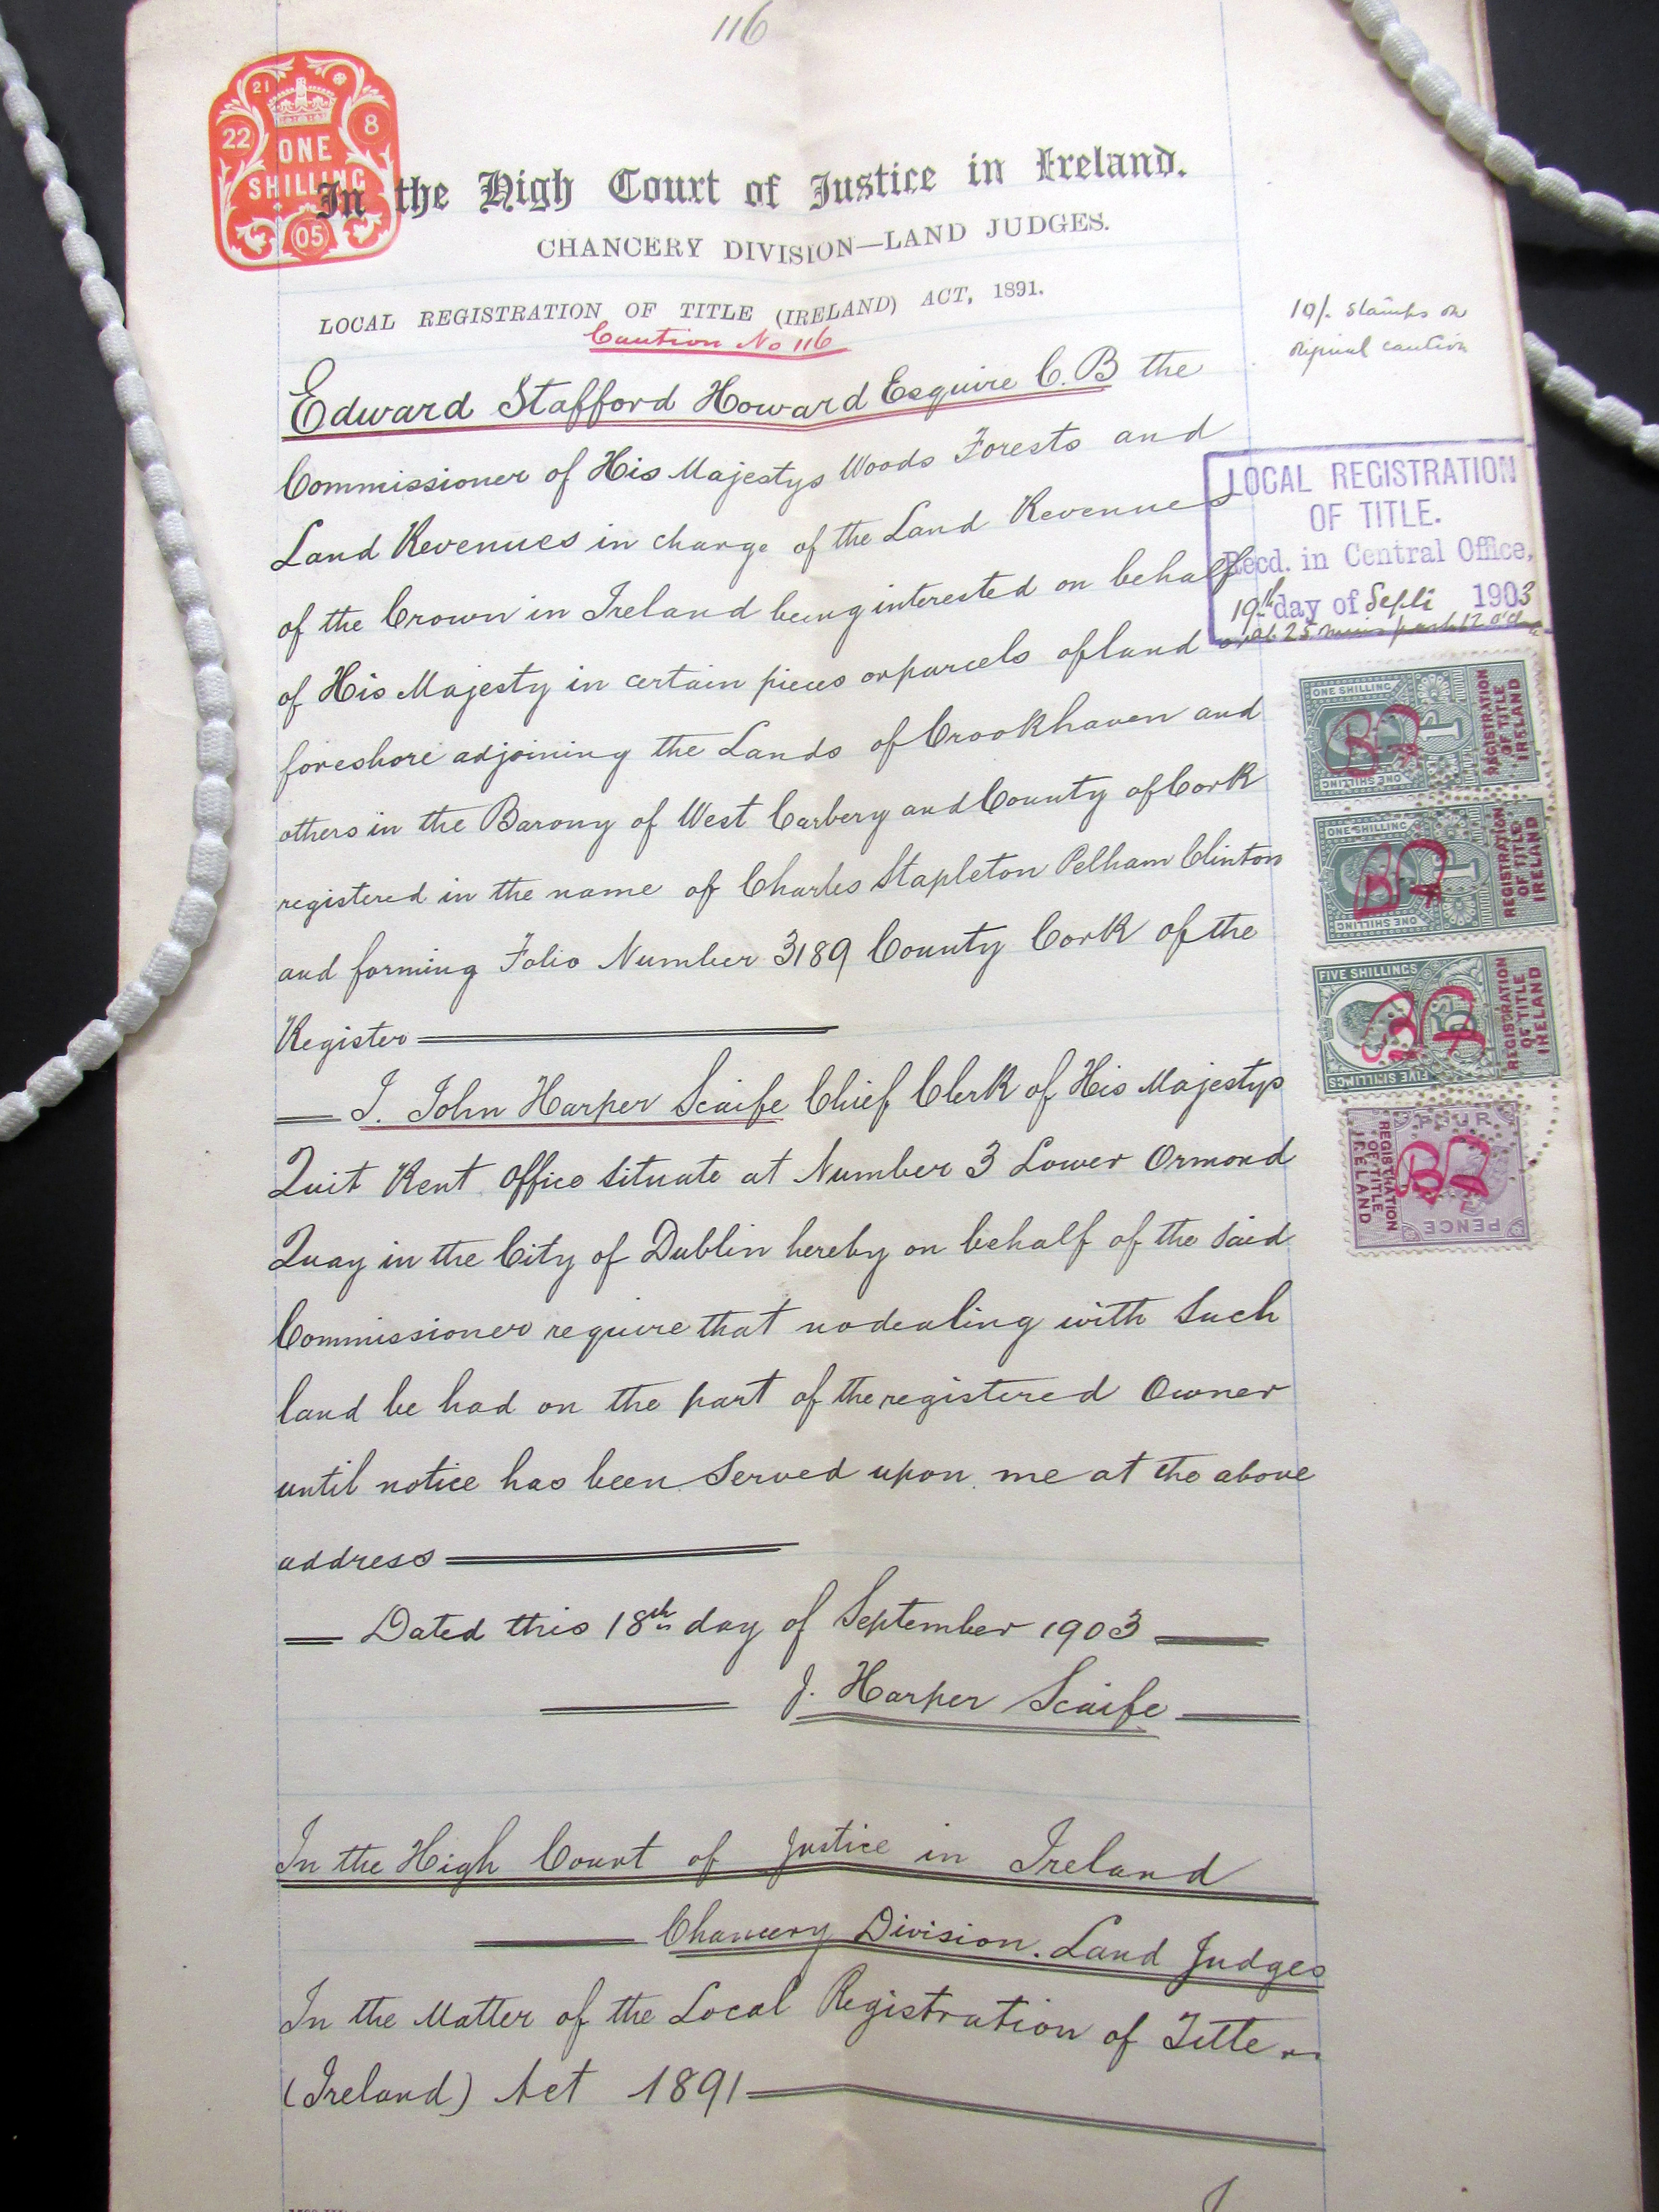 116
21
22
8
ONE
SHILLING
05
In the High Court of Justice in Ireland.
CHANCERY DIVISION—LAND JUDGES.
LOCAL REGISTRATION OF TITLE (IRELAND) ACT, 1891.
Caution No 116
10/- Stamps on
original caution
Edward Stafford Howard Esquire C.B the
Commissioner of His Majestys Woods Forests and
Land Revenues in charge of the Land Revenues
of the Crown in Ireland being interested on behalf
of His Majesty in certain pieces or parcels of land or
foreshore adjoining the Lands of Crookhaven and
others in the Barony of West Carbery and County of Cork
registered in the name of Charles Stapleton Pelham Clinton
and forming Folio Number 3189 County Cork of the
Register
I. John Harper Scaife Chief Clerk of His Majestys
Quit Rent Office situate at Number 3 Lower Ormond
Quay in the City of Dublin hereby on behalf of the said
Commissioner require that no dealing with such
land be had on the part of the registered Owner
until notice has been served upon me at the above
address
Dated this 18th day of September 1903
J. Harper Scaife
In the High Court of Justice in Ireland
Chancery Division. Land Judges
In the Matter of the Local Registration of Title
(Ireland) Act 1891
LOCAL REGISTRATION
OF TITLE.
Recd. in Central Office,
19th day of Septr 1903
at 25 mins past 12 o'c
ONE SHILLING
ONE SHILLING
REGISTRATION
OF TITLE
IRELAND
ONE SHILLING
ONE SHILLING
REGISTRATION
OF TITLE
IRELAND
FIVE SHILLINGS
FIVE SHILLINGS
REGISTRATION
OF TITLE
IRELAND
FOUR
PENCE
REGISTRATION
OF TITLE
IRELAND